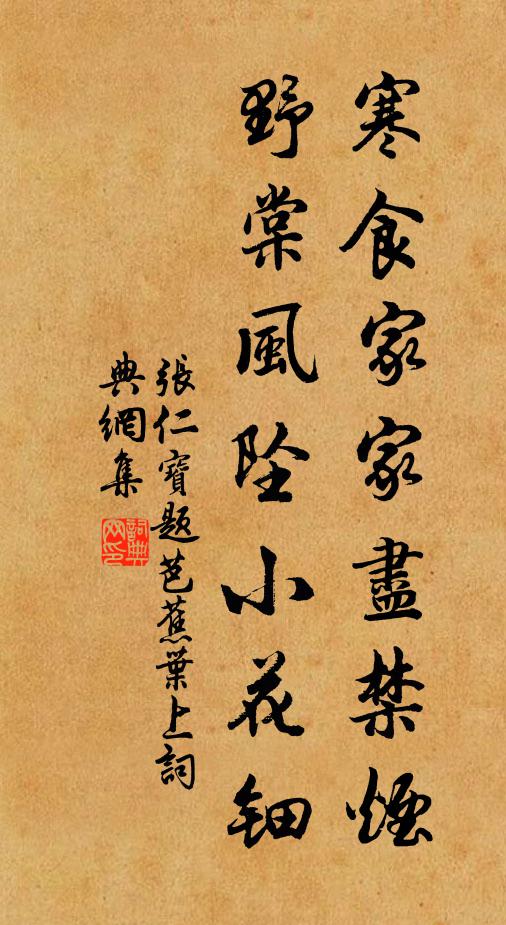 寒食家家盡禁煙
野棠風墜小花鈿
張仁寶題芭蕉葉上詞
典網集
詞典網印